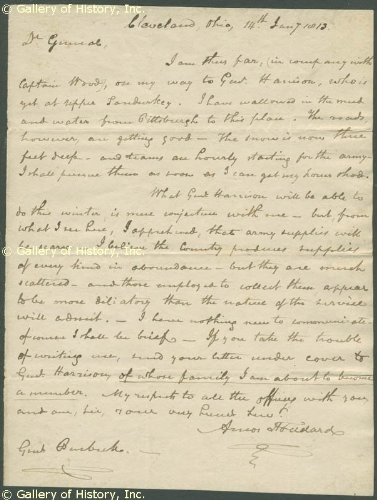 © Gallery of History, Inc.
Cleveland Ohio, 14th Jany 1813.
Dr General,
I am thus far, (in company with
Captain Wood, on my way to Genl. Harrison, who is
yet at upper Sanduskey. I have wallowed in the mud
and water from Pittsburgh to this place. The roads,
however, are getting good — The snow is now three
feet deep — and teams are hourly starting for the army —
I shall pursue them as soon as I can get my horse shod.
What Genl Harrison will be able to
do this winter is mere conjecture with me — but from
what I see here, I apprehend, that army supplies will
be scarce. I believe the Country produces supplies
of every kind in abundance — but they are much
scattered — and those employed to collect them appear
to be more dilatory than the nature of the service
will admit. — I have nothing new to communicate —
of course I shall be brief — If you take the trouble
of writing me, send your letter under cover to
Genl Harrison, of whose family I am about to become
a member. My respects to all the officers with you
and am, sir, your very humb Servt.
Amos Stoddard
Genl Burbeck. —
© Gallery of History, Inc.